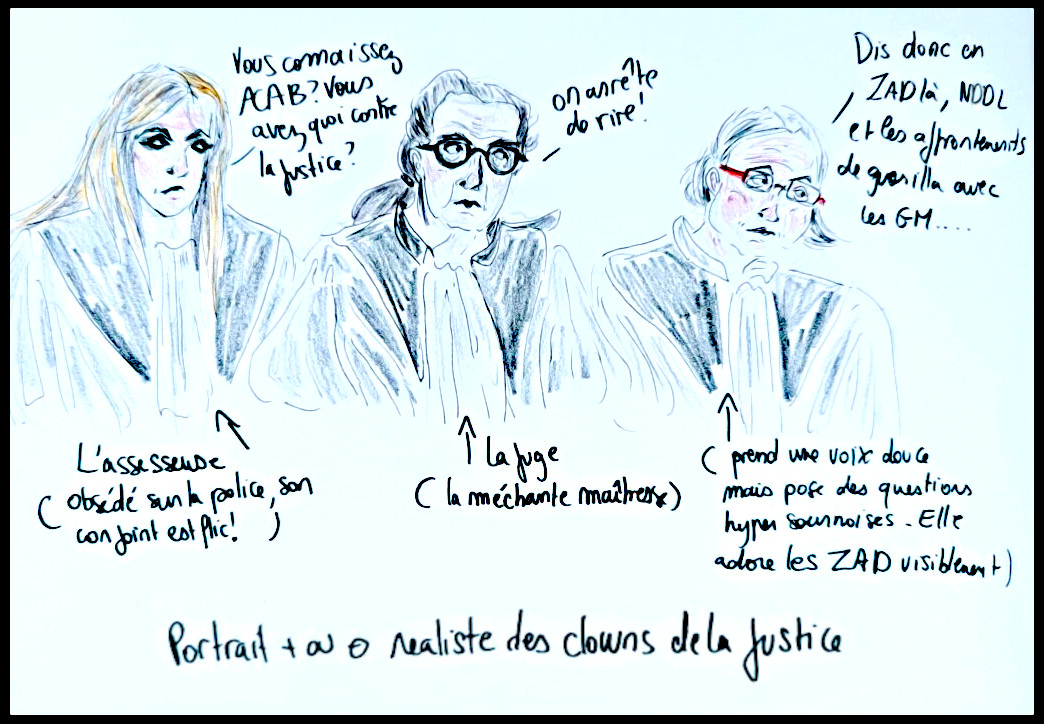 Vous connaissez
ACAB? Vous
avez quoi contre
la justice?
on arrête
de rire!
Dis donc en
ZAD là, NDDL
et les affrontements
de guerilla avec
les GM.....
L'assesseuse
( obsédé sur la police, son
conjoint est flic! )
La juge
( la méchante maîtresse)
( prend une voix douce
mais pose des questions
hyper sournoises. Elle
adore les ZAD visiblement)
Portrait + ou - realiste des clowns de la justice